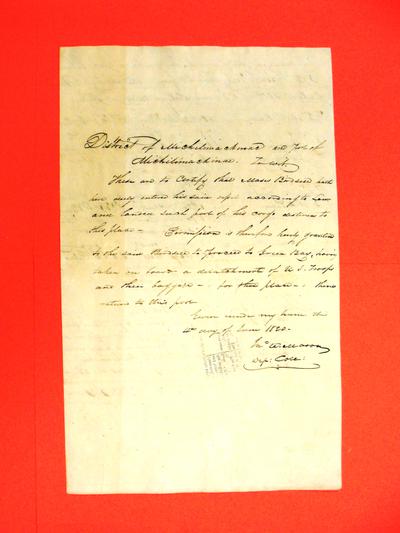 District of Michilimackinac and Port of
Michilimackinac. To wit
These are to Certify that Moses
has duly entered his said according to Law
and landed such part of his cargo as
this place – Permission is therefore hereby granted
to the said to proceed to Green Bay, having
taken on board a detachment of U.S. Troops
and their baggage – for that place – thence
return to this port
Given under my hand the
4th day of June 1820.
Mason
Dep: Coll: